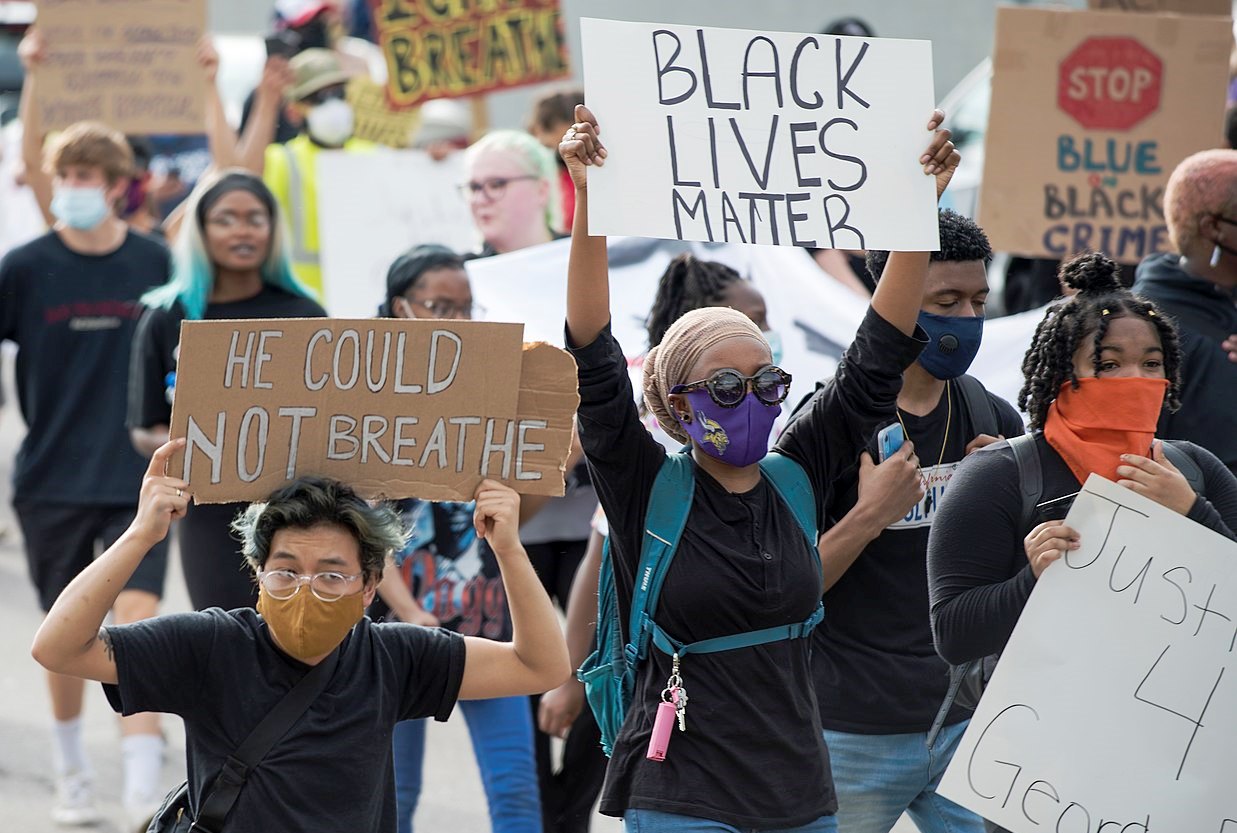 I CAN'T
BREATHE
BLACK
LIVES
MATTER
STOP
BLUE
ON
BLACK
CRIME
HE COULD
NOT BREATHE
Just
4
Geor